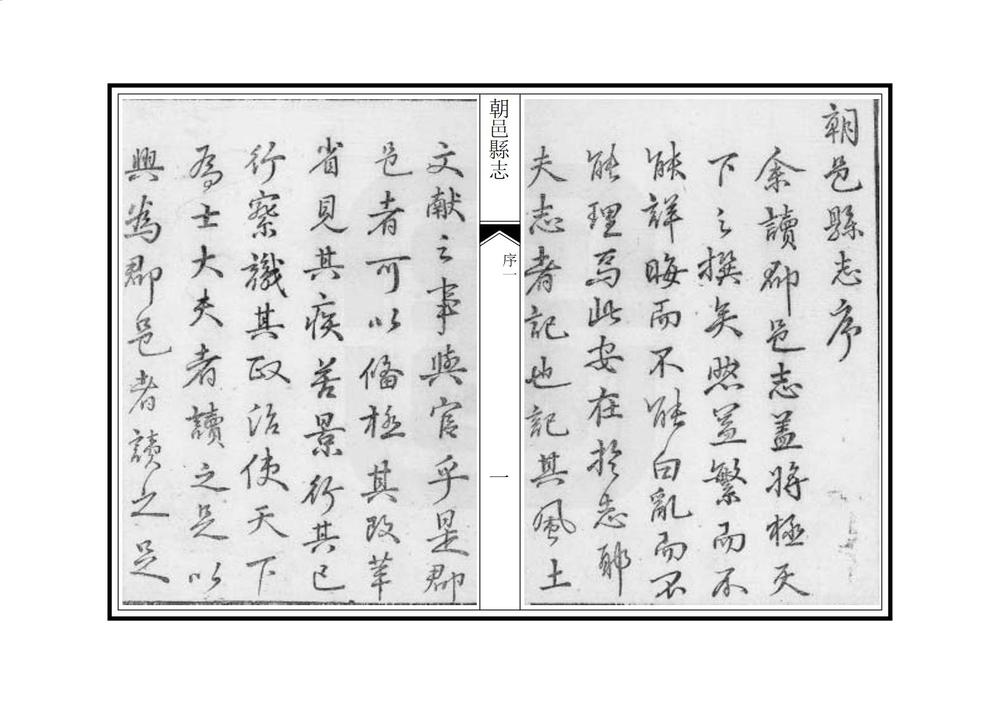 朝邑縣志序
余讀郡邑志蓋將極天
下之撰矣然益繁而不
能詳晦而不能白亂而不
能理焉此安在於志耶
夫志者記也記其風土
朝邑縣志
序一
一
文献之事與官乎是郡
邑者可以脩極其改革
省見其疾苦景行其已
行察識其政治使天下
為士大夫者讀之足以
興為郡邑者讀之足